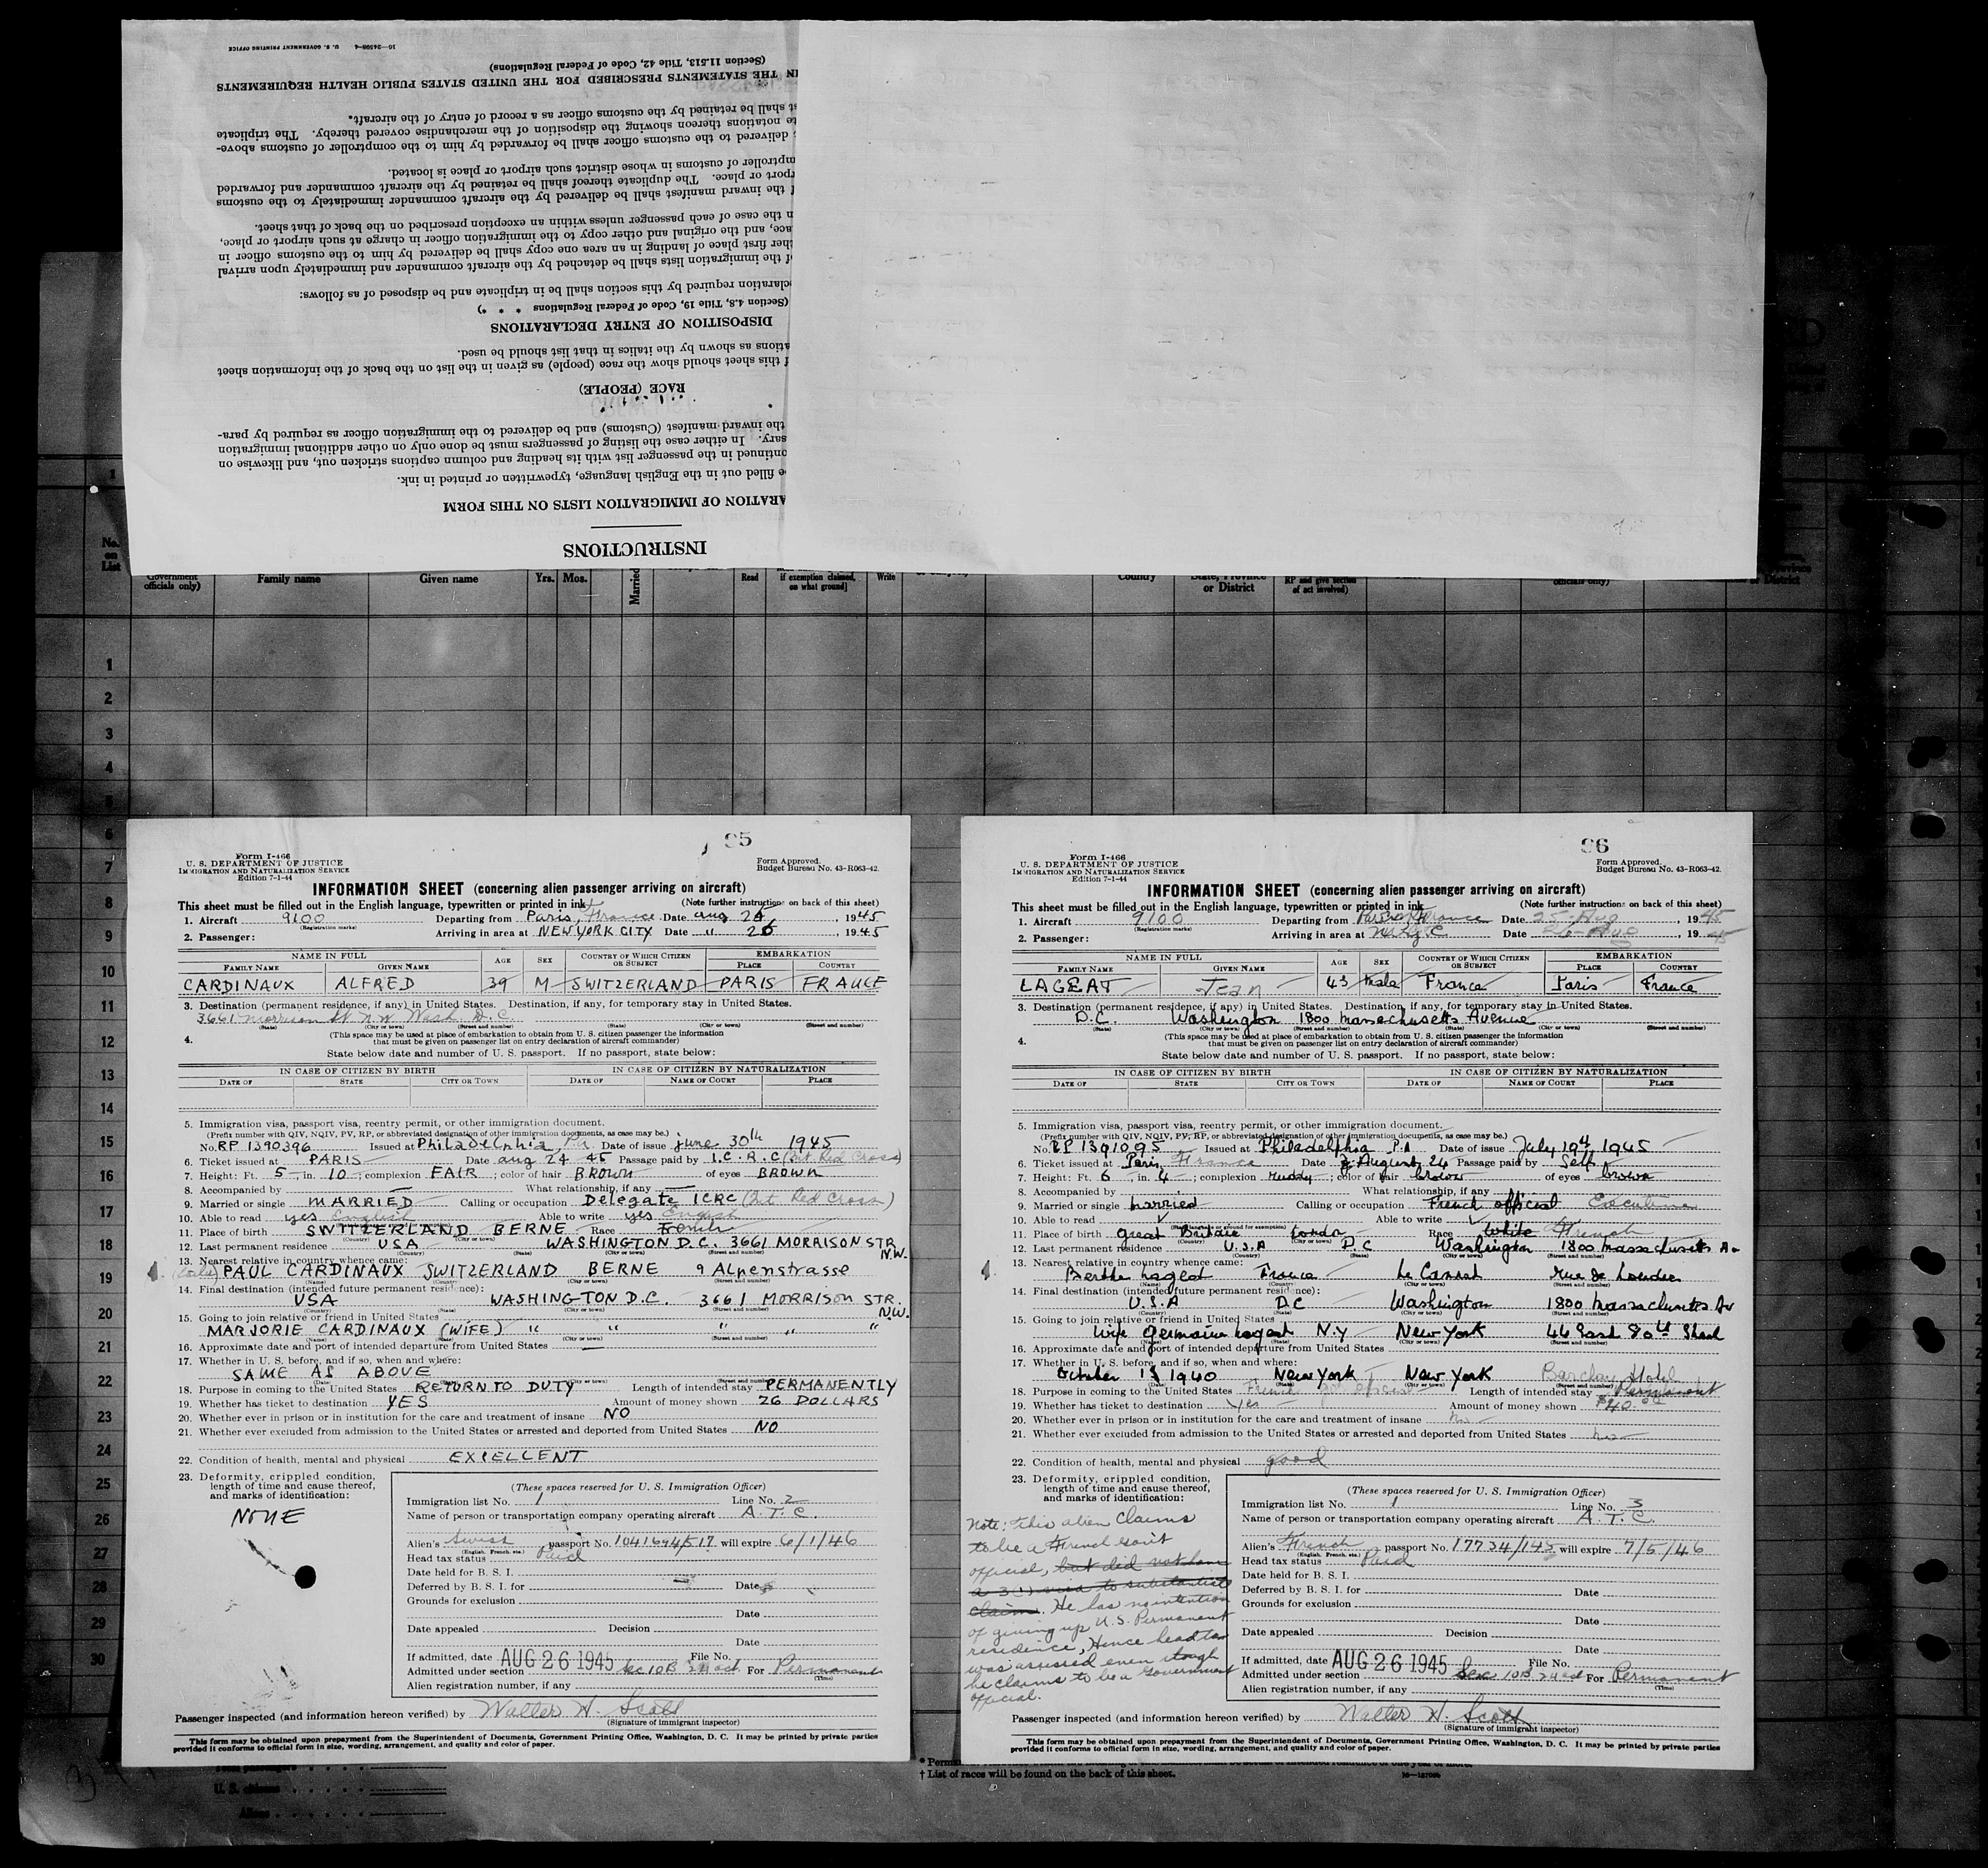 16—24598-4 U. S. GOVERNMENT PRINTING OFFICE
(Section 11.513, Title 42, Code of Federal Regulations)
IN THE STATEMENTS PRESCRIBED FOR THE UNITED STATES PUBLIC HEALTH REQUIREMENTS
st shall be retained by the customs officer as a record of entry of the aircraft.
te notations thereon showing the disposition of the merchandise covered thereby. The triplicate
delivered to the customs officer shall be forwarded by him to the comptroller of customs above-
mptroller of customs in whose district such airport or place is located.
rport or place. The duplicate thereof shall be retained by the aircraft commander and forwarded
f the inward manifest shall be delivered by the aircraft commander immediately to the customs
n the case of each passenger unless within an exception prescribed on the back of that sheet.
ace, and the original and other copy to the immigration officer in charge at such airport or place,
ther first place of landing in an area one copy shall be delivered by him to the customs officer in
f the immigration lists shall be detached by the aircraft commander and immediately upon arrival
claration required by this section shall be in triplicate and be disposed of as follows:
(Section 4.8, Title 19, Code of Federal Regulations * * *)
DISPOSITION OF ENTRY DECLARATIONS
ations as shown by the italics in that list should be used.
f this sheet should show the race (people) as given in the list on the back of the information sheet
RACE (PEOPLE)
the inward manifest (Customs) and be delivered to the immigration officer as required by para-
sary. In either case the listing of passengers must be done only on other additional immigration
ontinued in the passenger list with its heading and column captions stricken out, and likewise on
e filled out in the English language, typewritten or printed in ink.
ARATION OF IMMIGRATION LISTS ON THIS FORM
INSTRUCTIONS
No. on List
officials only) Family name Given name Yrs. Mos. Married Read if exemption claimed, on what ground] Write Country State, Province or District RP and give section of act involved) officials only)
1
2
3
4
5
6
7
8
9
10
11
12
13
14
15
16
17
18
19
20
21
22
23
24
25
26
27
28
29
30
95
Form I-466
U. S. DEPARTMENT OF JUSTICE
IMMIGRATION AND NATURALIZATION SERVICE
Edition 7-1-44
Form Approved.
Budget Bureau No. 43-R063-42.
INFORMATION SHEET (concerning alien passenger arriving on aircraft)
This sheet must be filled out in the English language, typewritten or printed in ink (Note further instructions on back of this sheet)
1. Aircraft 9100 Departing from Paris, France Date aug 25, 1945
(Registration marks)
2. Passenger: Arriving in area at NEW YORK CITY Date " 26, 1945
NAME IN FULL AGE SEX COUNTRY OF WHICH CITIZEN OR SUBJECT EMBARKATION
FAMILY NAME GIVEN NAME PLACE COUNTRY
CARDINAUX ALFRED 39 M SWITZERLAND PARIS FRANCE
3. Destination (permanent residence, if any) in United States. Destination, if any, for temporary stay in United States.
3661 Morrison St. N.W. Wash. D.C
(State) (City or town) (Street and number) (State) (City or town) (Street and number)
4. (This space may be used at place of embarkation to obtain from U. S. citizen passenger the information
that must be given on passenger list on entry declaration of aircraft commander)
State below date and number of U. S. passport. If no passport, state below:
IN CASE OF CITIZEN BY BIRTH IN CASE OF CITIZEN BY NATURALIZATION
DATE OF STATE CITY OR TOWN DATE OF NAME OF COURT PLACE
5. Immigration visa, passport visa, reentry permit, or other immigration document.
(Prefix number with QIV, NQIV, PV, RP, or abbreviated designation of other immigration documents, as case may be.)
No. RP 1390396 Issued at Philadelphia, Pa. Date of issue june 30th 1945
6. Ticket issued at PARIS Date aug 24 45 Passage paid by I.C.R.C (Int. Red Cross)
7. Height: Ft. 5, in. 10; complexion FAIR; color of hair BROWN of eyes BROWN
8. Accompanied by — What relationship, if any —
9. Married or single MARRIED Calling or occupation Delegate ICRC (Int. Red Cross)
10. Able to read yes English Able to write yes English
11. Place of birth SWITZERLAND BERNE Race French
(Country) (City or town)
12. Last permanent residence USA WASHINGTON D.C. 3661 MORRISON STR. N.W.
(Country) (State) (City or town) (Street and number)
13. Nearest relative in country whence came:
PAUL CARDINAUX SWITZERLAND BERNE 9 Alpenstrasse
(Name) (Country) (City or town) (Street and number)
14. Final destination (intended future permanent residence):
USA WASHINGTON D.C. 3661 MORRISON STR. N.W.
(Country) (State) (City or town) (Street and number)
15. Going to join relative or friend in United States
MARJORIE CARDINAUX (WIFE) " " " " "
(Name) (State) (City or town) (Street and number)
16. Approximate date and port of intended departure from United States —
17. Whether in U. S. before, and if so, when and where:
SAME AS ABOVE
(Date) (City or town) (Street and number)
18. Purpose in coming to the United States RETURN TO DUTY Length of intended stay PERMANENTLY
19. Whether has ticket to destination YES Amount of money shown 26 DOLLARS
20. Whether ever in prison or in institution for the care and treatment of insane NO
21. Whether ever excluded from admission to the United States or arrested and deported from United States NO
22. Condition of health, mental and physical EXCELLENT
23. Deformity, crippled condition,
length of time and cause thereof,
and marks of identification:
NONE
(These spaces reserved for U. S. Immigration Officer)
Immigration list No. 1 Line No. 2
Name of person or transportation company operating aircraft A.T.C.
Alien's Swiss passport No. 1041694/517 will expire 6/1/46
(English, French, etc.)
Head tax status Paid
Date held for B. S. I.
Deferred by B. S. I. for Date
Grounds for exclusion
Date
Date appealed Decision
Date
If admitted, date AUG 26 1945 File No.
Admitted under section Sec 10B 24 act For Permanent
(Time)
Alien registration number, if any
Passenger inspected (and information hereon verified) by Walter H. Scott
(Signature of immigrant inspector)
This form may be obtained upon prepayment from the Superintendent of Documents, Government Printing Office, Washington, D. C. It may be printed by private parties
provided it conforms to official form in size, wording, arrangement, and quality and color of paper.
96
Form I-466
U. S. DEPARTMENT OF JUSTICE
IMMIGRATION AND NATURALIZATION SERVICE
Edition 7-1-44
Form Approved.
Budget Bureau No. 43-R063-42.
INFORMATION SHEET (concerning alien passenger arriving on aircraft)
This sheet must be filled out in the English language, typewritten or printed in ink (Note further instructions on back of this sheet)
1. Aircraft 9100 Departing from Paris France Date 25-Aug, 1945
(Registration marks)
2. Passenger: Arriving in area at N.Y.C Date 26-Aug, 1945
NAME IN FULL AGE SEX COUNTRY OF WHICH CITIZEN OR SUBJECT EMBARKATION
FAMILY NAME GIVEN NAME PLACE COUNTRY
LAGEAT Jean 43 Male France Paris France
3. Destination (permanent residence, if any) in United States. Destination, if any, for temporary stay in United States.
D.C. Washington 1800 Massachusetts Avenue
(State) (City or town) (Street and number) (State) (City or town) (Street and number)
4. (This space may be used at place of embarkation to obtain from U. S. citizen passenger the information
that must be given on passenger list on entry declaration of aircraft commander)
State below date and number of U. S. passport. If no passport, state below:
IN CASE OF CITIZEN BY BIRTH IN CASE OF CITIZEN BY NATURALIZATION
DATE OF STATE CITY OR TOWN DATE OF NAME OF COURT PLACE
5. Immigration visa, passport visa, reentry permit, or other immigration document.
(Prefix number with QIV, NQIV, PV, RP, or abbreviated designation of other immigration documents, as case may be.)
No. RP 1391095 Issued at Philadelphia Pa Date of issue July 19th 1945
6. Ticket issued at Paris France Date August 24 Passage paid by Self
7. Height: Ft. 6, in. 4; complexion ruddy; color of hair brown of eyes brown
8. Accompanied by What relationship, if any
9. Married or single married Calling or occupation French official Executive
10. Able to read ✓ Able to write ✓
11. Place of birth Great Britain London Race White French
(Country) (City or town)
12. Last permanent residence U.S.A D.C Washington 1800 Massachusetts Av
(Country) (State) (City or town) (Street and number)
13. Nearest relative in country whence came:
Berthe Lageat France Le Cannet rue de Londres
(Name) (Country) (City or town) (Street and number)
14. Final destination (intended future permanent residence):
U.S.A DC Washington 1800 Massachusetts Av
(Country) (State) (City or town) (Street and number)
15. Going to join relative or friend in United States
Wife Germaine Lageat N.Y New York 46 East 80th Street
(Name) (State) (City or town) (Street and number)
16. Approximate date and port of intended departure from United States
17. Whether in U. S. before, and if so, when and where:
October 1940 New York New York Barclay Hotel
(State) (City or town) (Street and number)
18. Purpose in coming to the United States French gov official Length of intended stay Permanent
19. Whether has ticket to destination Yes Amount of money shown $40.00
20. Whether ever in prison or in institution for the care and treatment of insane No
21. Whether ever excluded from admission to the United States or arrested and deported from United States no
22. Condition of health, mental and physical good
23. Deformity, crippled condition,
length of time and cause thereof,
and marks of identification:
Note: this alien claims
to be a French Gov't
official, but did not have
a 3(1) visa to substantiate
claim. He has no intention
of giving up U.S. Permanent
residence, Hence head tax
was assessed even though
he claims to be a Government
official.
(These spaces reserved for U. S. Immigration Officer)
Immigration list No. 1 Line No. 3
Name of person or transportation company operating aircraft A.T.C.
Alien's French passport No. 17734/145 will expire 7/5/46
(English, French, etc.)
Head tax status Paid
Date held for B. S. I.
Deferred by B. S. I. for Date
Grounds for exclusion
Date
Date appealed Decision
Date
If admitted, date AUG 26 1945 File No.
Admitted under section Sec 10B 24 act For Permanent
(Time)
Alien registration number, if any
Passenger inspected (and information hereon verified) by Walter H. Scott
(Signature of immigrant inspector)
This form may be obtained upon prepayment from the Superintendent of Documents, Government Printing Office, Washington, D. C. It may be printed by private parties
provided it conforms to official form in size, wording, arrangement, and quality and color of paper.
U. S. citizens
Aliens
† List of races will be found on the back of this sheet.